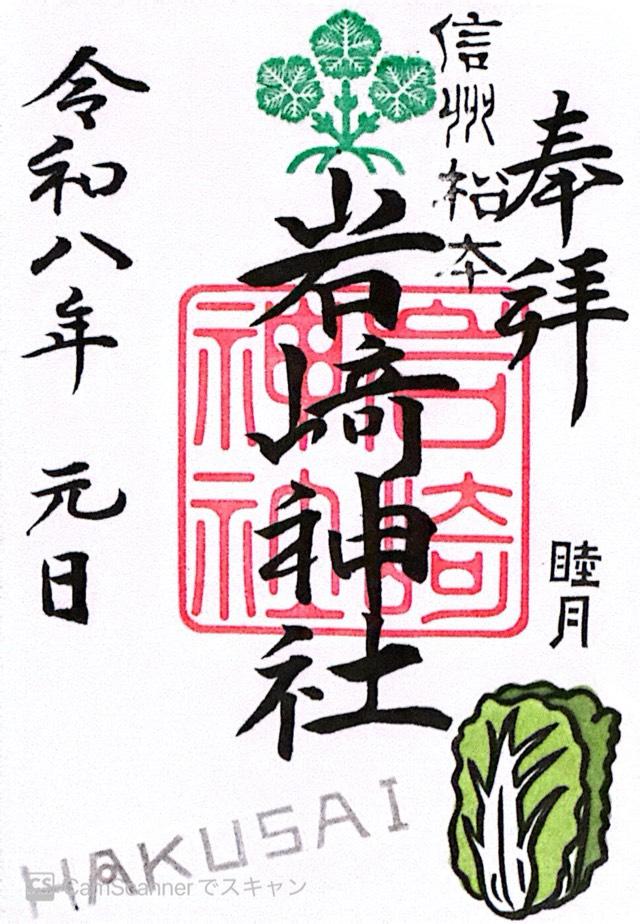 奉拝
信州松本
岩崎神社
岩崎神社
令和八年 元日
睦月
HAKUSAI
CS CamScannerでスキャン